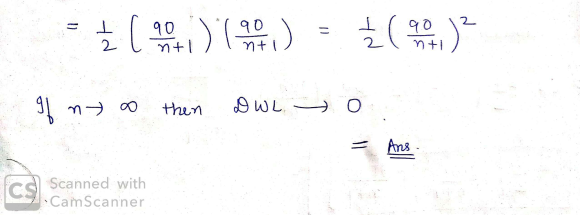 = 1/2 (90/n+1) (90/n+1) = 1/2 (90/n+1)²
If n → ∞ then DWL → 0.
= Ans.
CS Scanned with
CamScanner